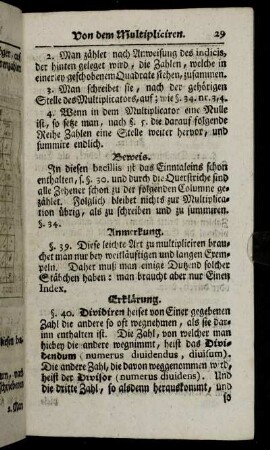 Von dem Multipliciren. 29
2. Man zählet nach Anweisung des indicis,
der hinten geleget wird, die Zahlen, welche in
einerley geschobenem Quadrate stehen, zusammen.
3. Man schreibet sie, nach der gehörigen
Stelle des Multiplicators, auf; wie §. 34. nr. 3/4.
4. Wenn in dem Multiplicator eine Nulle
ist, so setze man, nach §. 5. die darauf folgende
Reihe Zahlen eine Stelle weiter hervor, und
summire endlich.
Beweis.
In diesen bacillis ist das Einmaleins schon
enthalten, s. §. 30. und durch die Querstriche sind
alle Zehener schon zu der folgenden Columne ge-
zählet. Folglich bleibet nichts zur Multiplica-
tion übrig, als zu schreiben und zu summiren.
§. 34.
Anmerkung.
§. 39. Diese leichte Art zu multipliciren brau-
chet man nur bey weitläuftigen und langen Exem-
peln. Daher muß man einige Dutzend solcher
Stäbchen haben: man braucht aber nur Einen
Index.
Erklärung.
§. 40. Dividiren heiset von Einer gegebenen
Zahl die andere so oft wegnehmen, als sie dar-
inn enthalten ist. Die Zahl, von welcher man
hiebey die andere wegnimmt, heist das Divi-
dendum (numerus diuidendus, diuisum).
Die andere Zahl, die davon weggenommen wird,
heist der Divisor (numerus diuidens). Und
die dritte Zahl, so alsdenn herauskommt, und
so